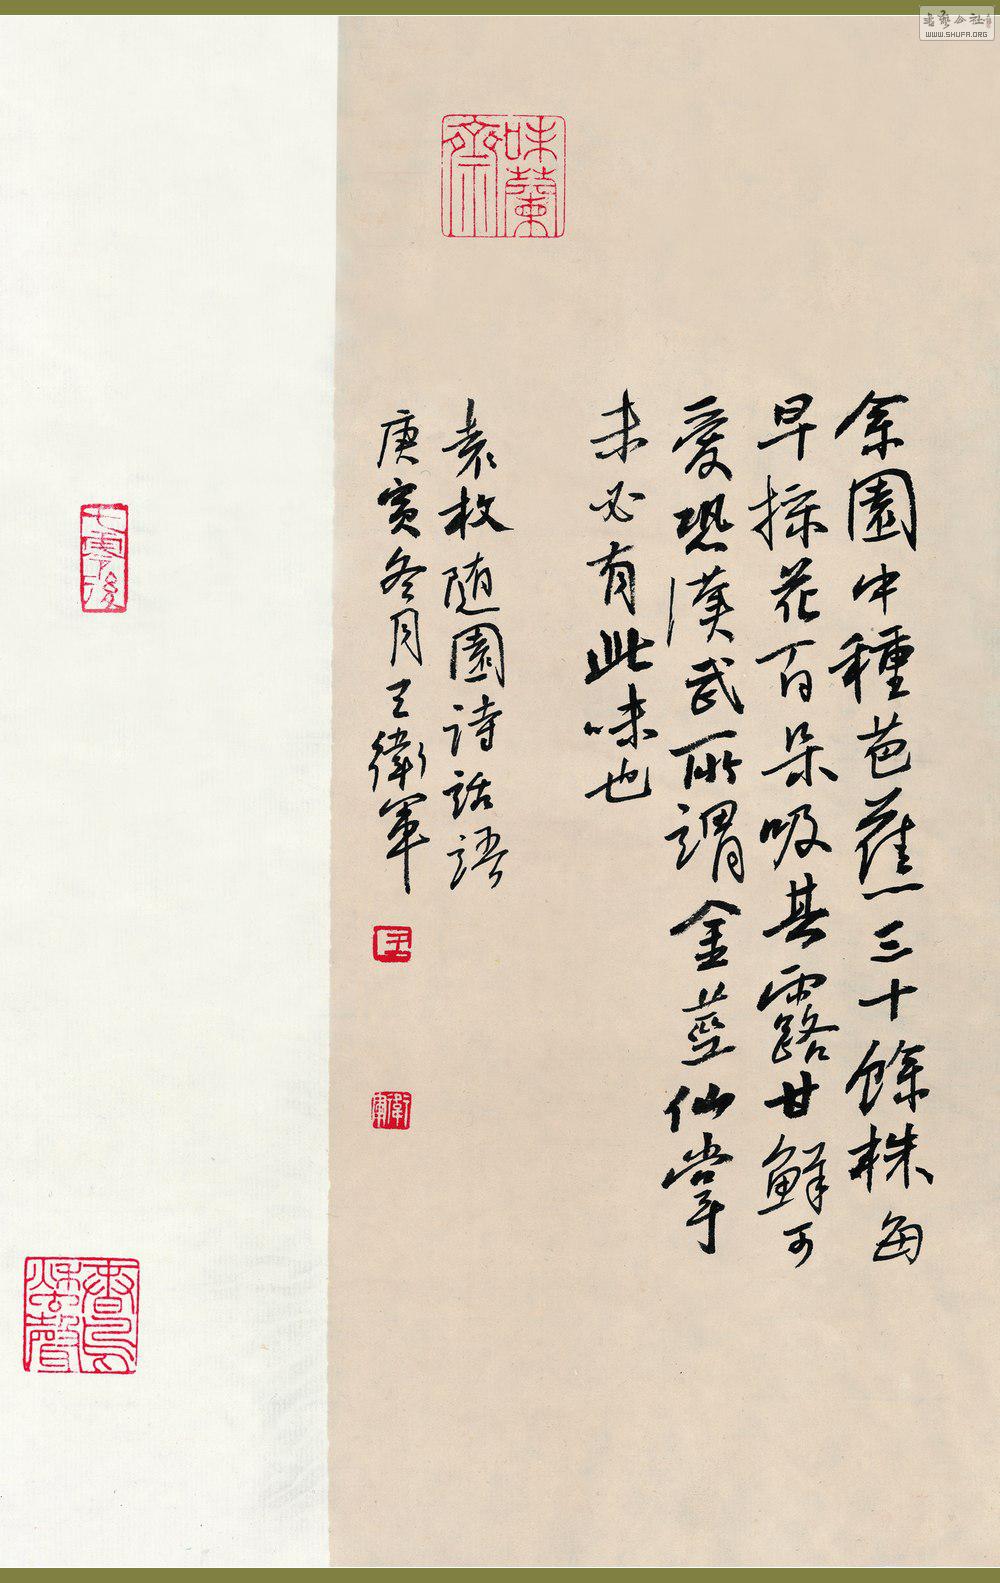 余園中種芭蕉三十餘株每
早採花百朵吸其露甘鮮可
愛恐漢武所謂金莖仙掌
未必有此味也
袁枚隨園詩話語
庚寅冬月王衛軍
味蘭齋
七零後
衛軍
WWW.SHUFA.ORG